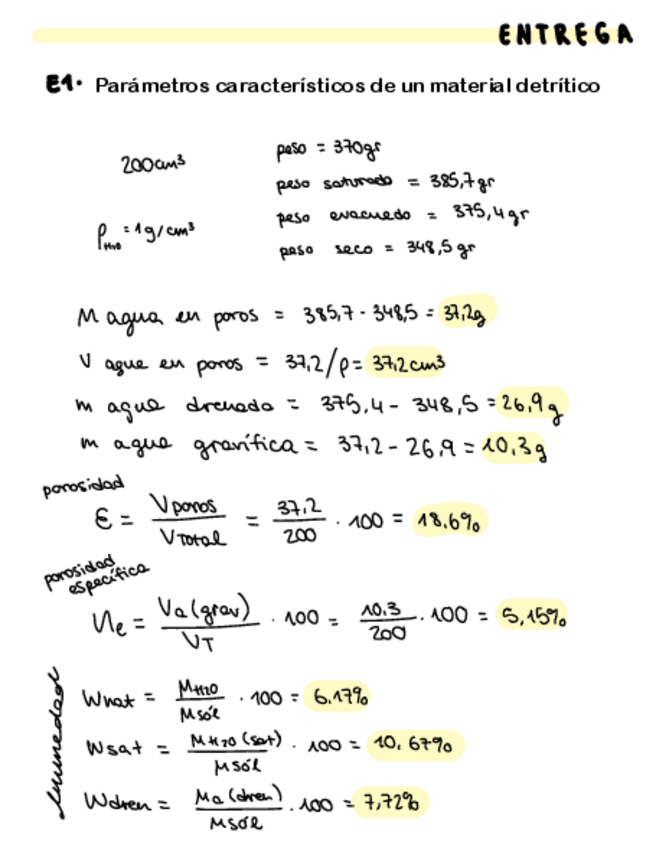 ENTREGA
E1. Parámetros característicos de un material detrítico
200cm³
peso = 370gr
peso saturado = 385,7gr
ρH₂O = 1g/cm³
peso evacuado = 375,4gr
peso seco = 348,5gr
M agua en poros = 385,7 - 348,5 = 37,2g
V agua en poros = 37,2/ρ = 37,2cm³
m agua drenada = 375,4 - 348,5 = 26,9g
m agua gravífica = 37,2 - 26,9 = 10,3g
porosidad
ε = Vporos / VTotal = 37,2 / 200 · 100 = 18,6%
porosidad específica
ne = Va(grav) / VT · 100 = 10,3 / 200 · 100 = 5,15%
humedad
Wnat = MH2O / Msól · 100 = 6.17%
Wsat = MH2O (sat) / Msól · 100 = 10,67%
Wdren = Ma (dren) / Msól · 100 = 7,72%